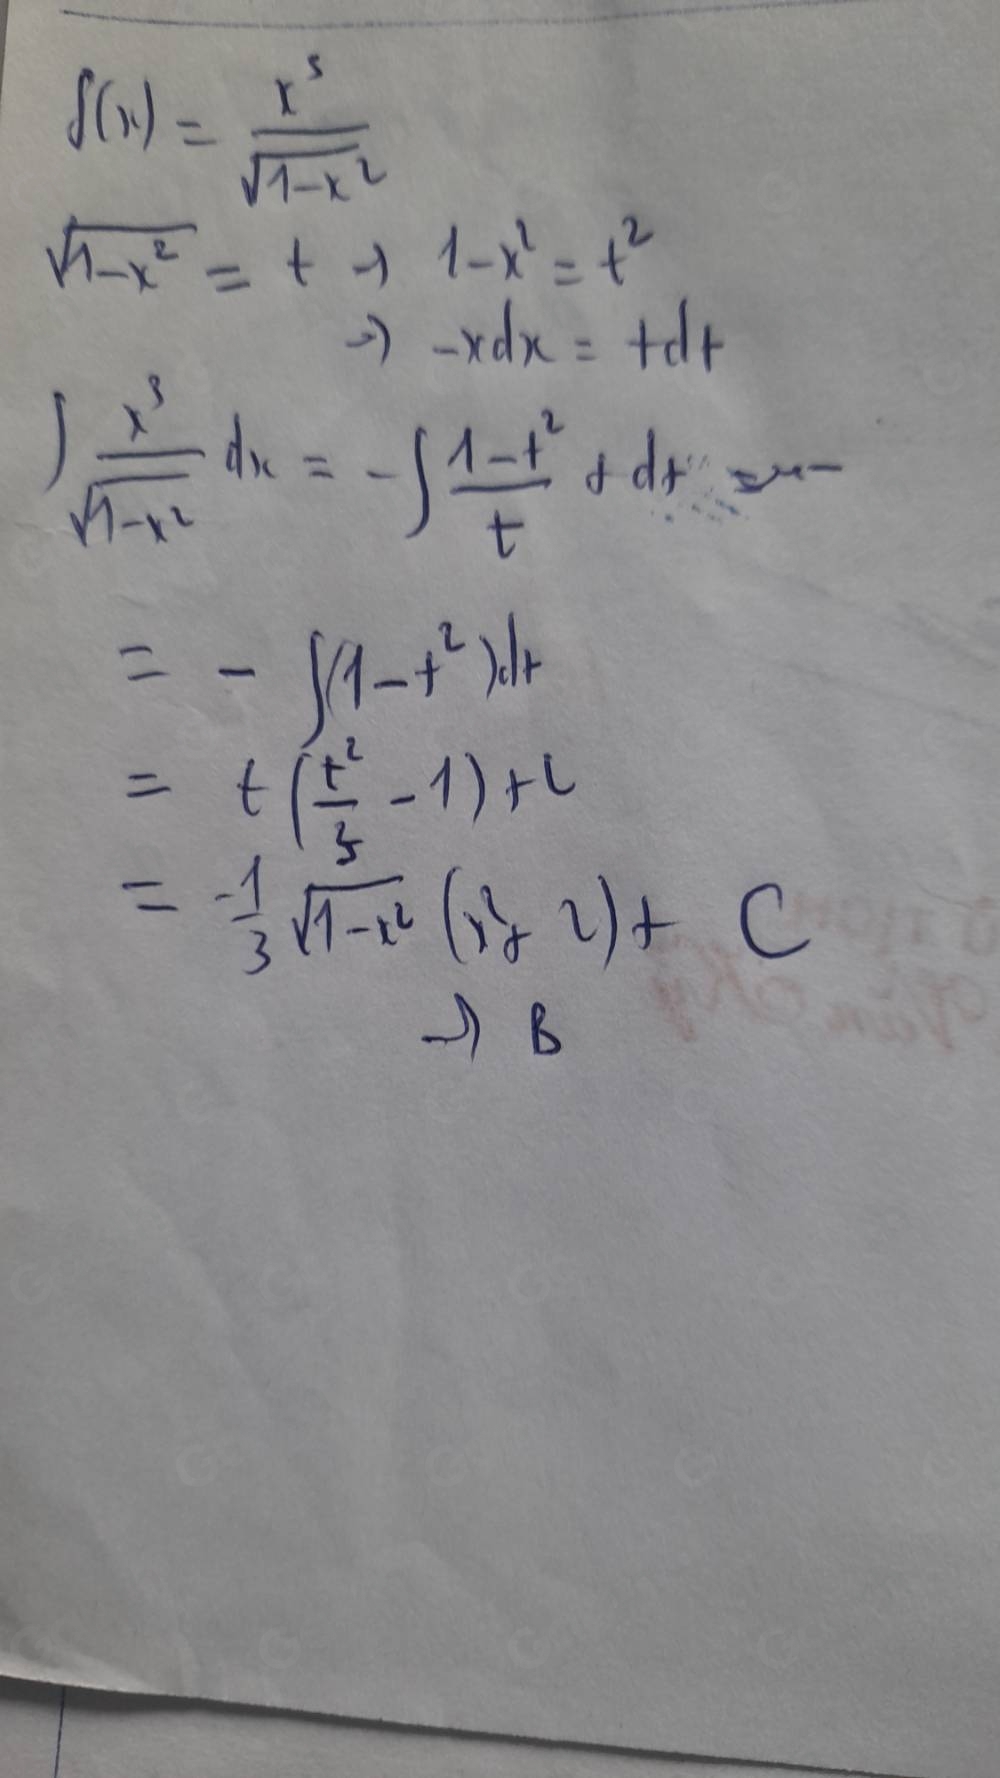 f(x) = x³/√(1-x²)
√(1-x²) = t → 1-x² = t²
→ -xdx = tdt
∫ x³/√(1-x²) dx = -∫ (1-t²)/t t dt =
= - ∫(1-t²)dt
= t(t²/3 - 1) + C
= -1/3 √(1-x²) (x²+ 2) + C
→ B